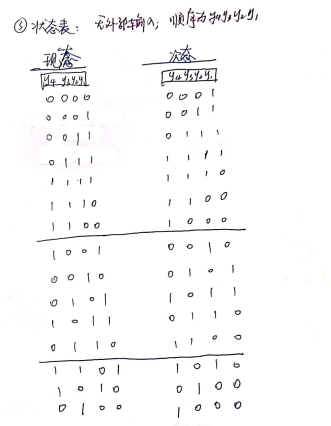 ③ 状态表: 无外部输入; 顺序为 y4y3y2y1
现态 次态
y4 y3y2y1 y4 y3y2y1
0 0 0 0 0 0 0 1
0 0 0 1 0 0 1 1
0 0 1 1 0 1 1 1
0 1 1 1 1 1 1 1
1 1 1 1 1 1 1 0
1 1 1 0 1 1 0 0
1 1 0 0 1 0 0 0
1 0 0 1 0 0 1 0
0 0 1 0 0 1 0 1
0 1 0 1 1 0 1 1
1 0 1 1 0 1 1 0
0 1 1 0 1 1 0 0
1 1 0 1 1 0 1 0
1 0 1 0 0 1 0 0
0 1 0 0 1 0 0 0